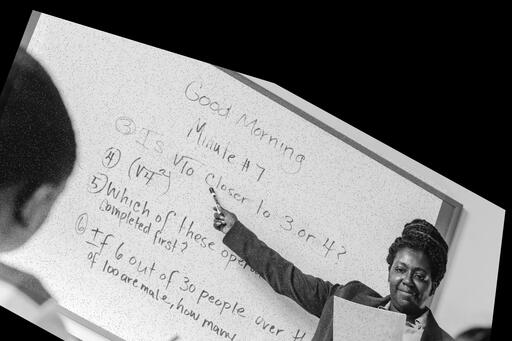 Good Morning
Minute #7
③ Is √10 closer to 3 or 4?
④ (√4²)
⑤ Which of these
completed first?
⑥ If 6 out of 30 people over
of 100 are male, how many